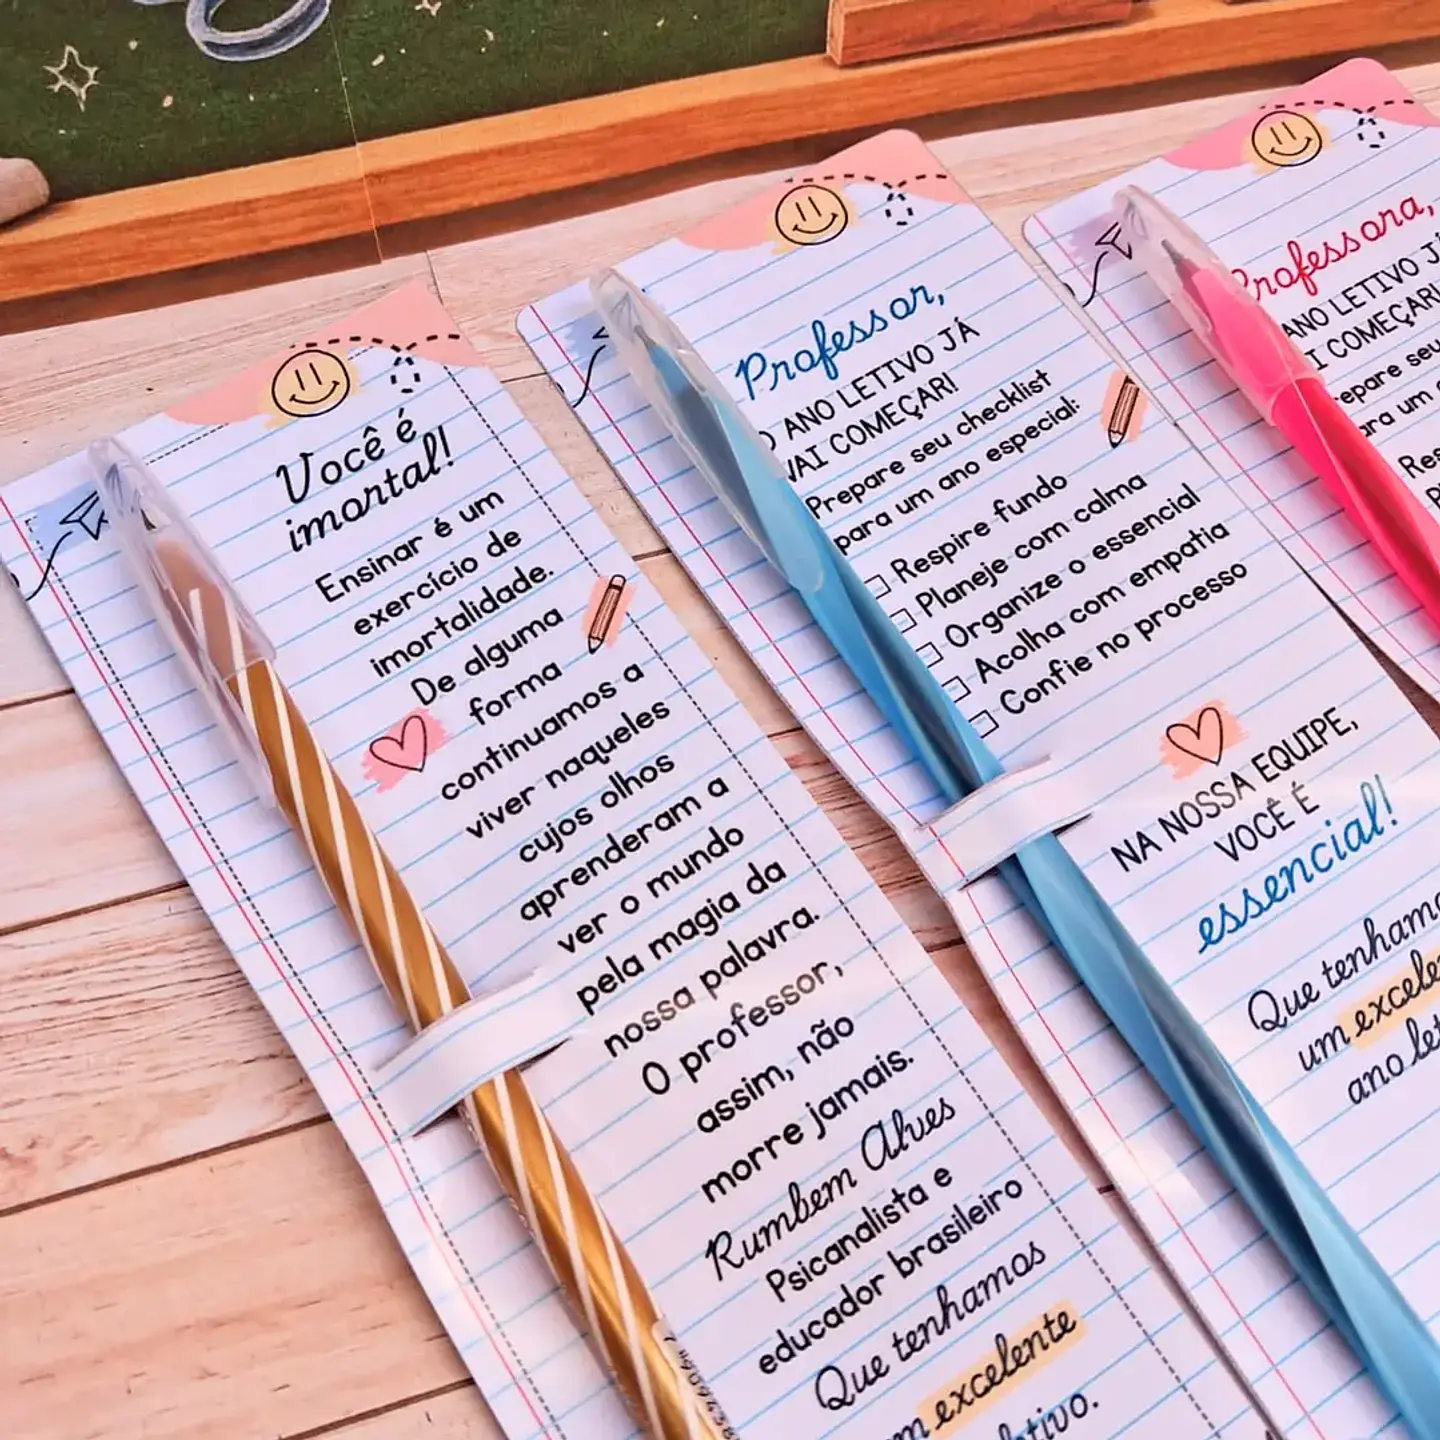 Você é
imortal!
Ensinar é um
exercício de
imortalidade.
De alguma
forma
continuamos a
viver naqueles
cujos olhos
aprenderam a
ver o mundo
pela magia da
nossa palavra.
O professor,
assim, não
morre jamais.
Rumbem Alves
Psicanalista e
educador brasileiro
Que tenhamos
excelente
Professor,
O ANO LETIVO JÁ
VAI COMEÇAR!
Prepare seu checklist
para um ano especial:
Respire fundo
Planeje com calma
Organize o essencial
Acolha com empatia
Confie no processo
NA NOSSA EQUIPE,
VOCÊ É
essencial!
Que tenhamos
um
ano
Professora,
ANO LETIVO JÁ
COMEÇAR!
seu
um